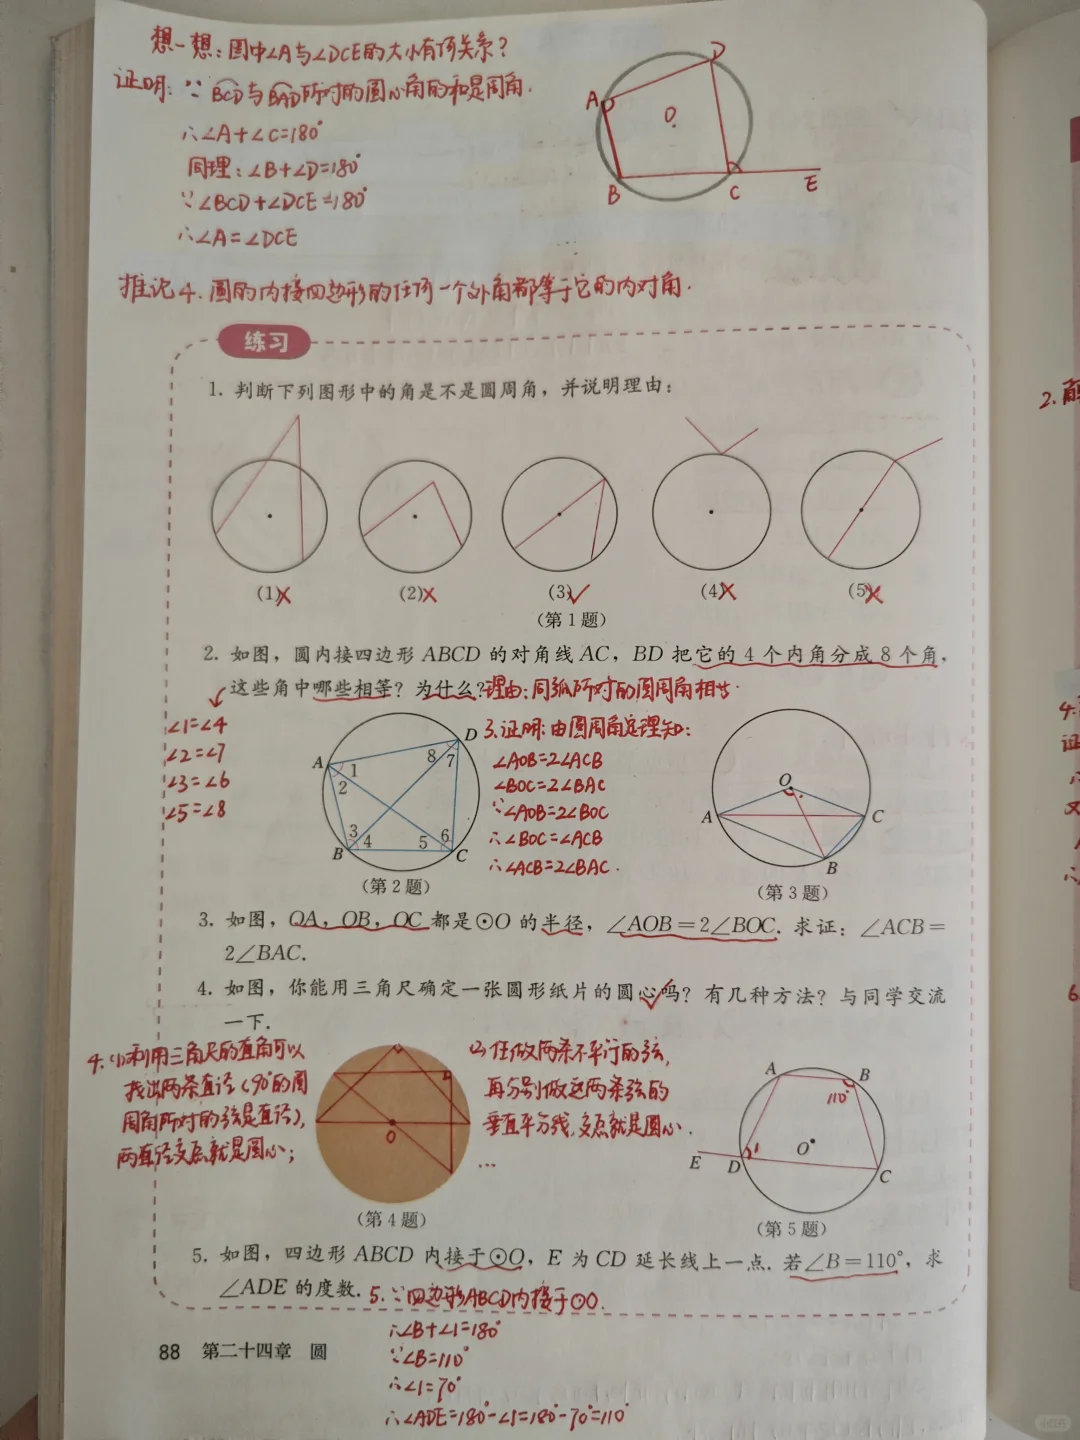 想一想:图中∠A与∠DCE的大小有何关系?
证明: ∵ BCD与BAD所对的圆心角的和是周角.
∴∠A+∠C=180°
同理:∠B+∠D=180°
∵∠BCD+∠DCE=180°
∴∠A=∠DCE
D
A
O
B
C
E
推论4. 圆的内接四边形的任何一个外角都等于它的内对角.
练习
1. 判断下列图形中的角是不是圆周角,并说明理由:
(1)× (2)× (3)✓ (4)× (5)×
(第1题)
2. 如图,圆内接四边形 ABCD 的对角线 AC,BD 把它的 4 个内角分成 8 个角,
这些角中哪些相等?为什么?理由:同弧所对的圆周角相等.
∠1=∠4
∠2=∠7
∠3=∠6
∠5=∠8
A
B
C
D
1
2
3
4
5
6
7
8
(第2题)
3.证明:由圆周角定理知:
∠AOB=2∠ACB
∠BOC=2∠BAC
∵∠AOB=2∠BOC
∴∠BOC=∠ACB
∴∠ACB=2∠BAC.
O
A
C
B
(第3题)
3. 如图,OA,OB,OC 都是⊙O 的半径,∠AOB=2∠BOC. 求证:∠ACB=
2∠BAC.
4. 如图,你能用三角尺确定一张圆形纸片的圆心吗?有几种方法?与同学交流
一下.
4.(1)利用三角尺的直角可以
找出两条直径(90°的圆
周角所对的弦是直径),
两直径交点就是圆心;
O
(第4题)
(2)任做两条不平行的弦,
再分别做这两条弦的
垂直平分线,交点就是圆心.
...
A
B
110°
1
O
E
D
C
(第5题)
5. 如图,四边形 ABCD 内接于⊙O,E 为 CD 延长线上一点. 若∠B=110°,求
∠ADE 的度数.
5.∵四边形ABCD内接于⊙O.
∴∠B+∠1=180°
∵∠B=110°
∴∠1=70°
∴∠ADE=180°-∠1=180°-70°=110°
88 第二十四章 圆
2.
4.
证
∴
又
6